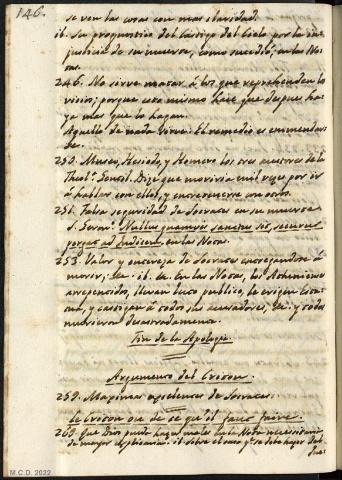 146.
se ven las cosas con mas claridad.
ib. Su prognostico del castigo del Cielo por la in-
justicia de su muerte, como sucedió; en las No-
tas.
246. No sirve matar á los que reprehenden los
vicios; porque esto mismo hace que despues ha-
ya mas que lo hagan.
Aquello de nada sirve: El remedio es enmendar-
se.
252. Museo, Hesiodo, y Homero los tres autores de la
Theol.ª Gentil. Dize que moriria mil vezes por ir
á hablar con ellos, y entretenerse con otros.
251. Falsa seguridad de Socrates en su muerte
S. Geron.º Nullus quamvis sanctus sit, securus
pergat ad Judicem, en las Notas.
253. Valor y entereza de Socrates entregandose á
morir; &c. ib. &c. En las Notas, los Athenienses
arrepentidos, llevan luto publico, le erigen esta-
tua, y castigan á todos sus acusadores, &c. y todos
murieron desastradamente.
Fin de la Apologia.
Argumento del Criton.
259. Maximas excelentes de Socrates.
Le Criton ou de ce qu'il faut faire.
263. Que Dios puede hacer males en la Nota
de mayor explicacion. ib. sobre el caso q.e se debe hacer del
M.C.D. 2022